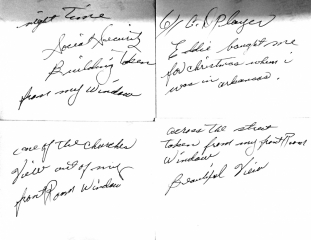 night Time
Social Security
Building Taken
from my Window
W/ C.D Player
Eddie bought me
for christmas when i
was in arkansas.
one of the churches
View out of my
front Room Window
across the street
taken from my front Room
Window
Beautiful View